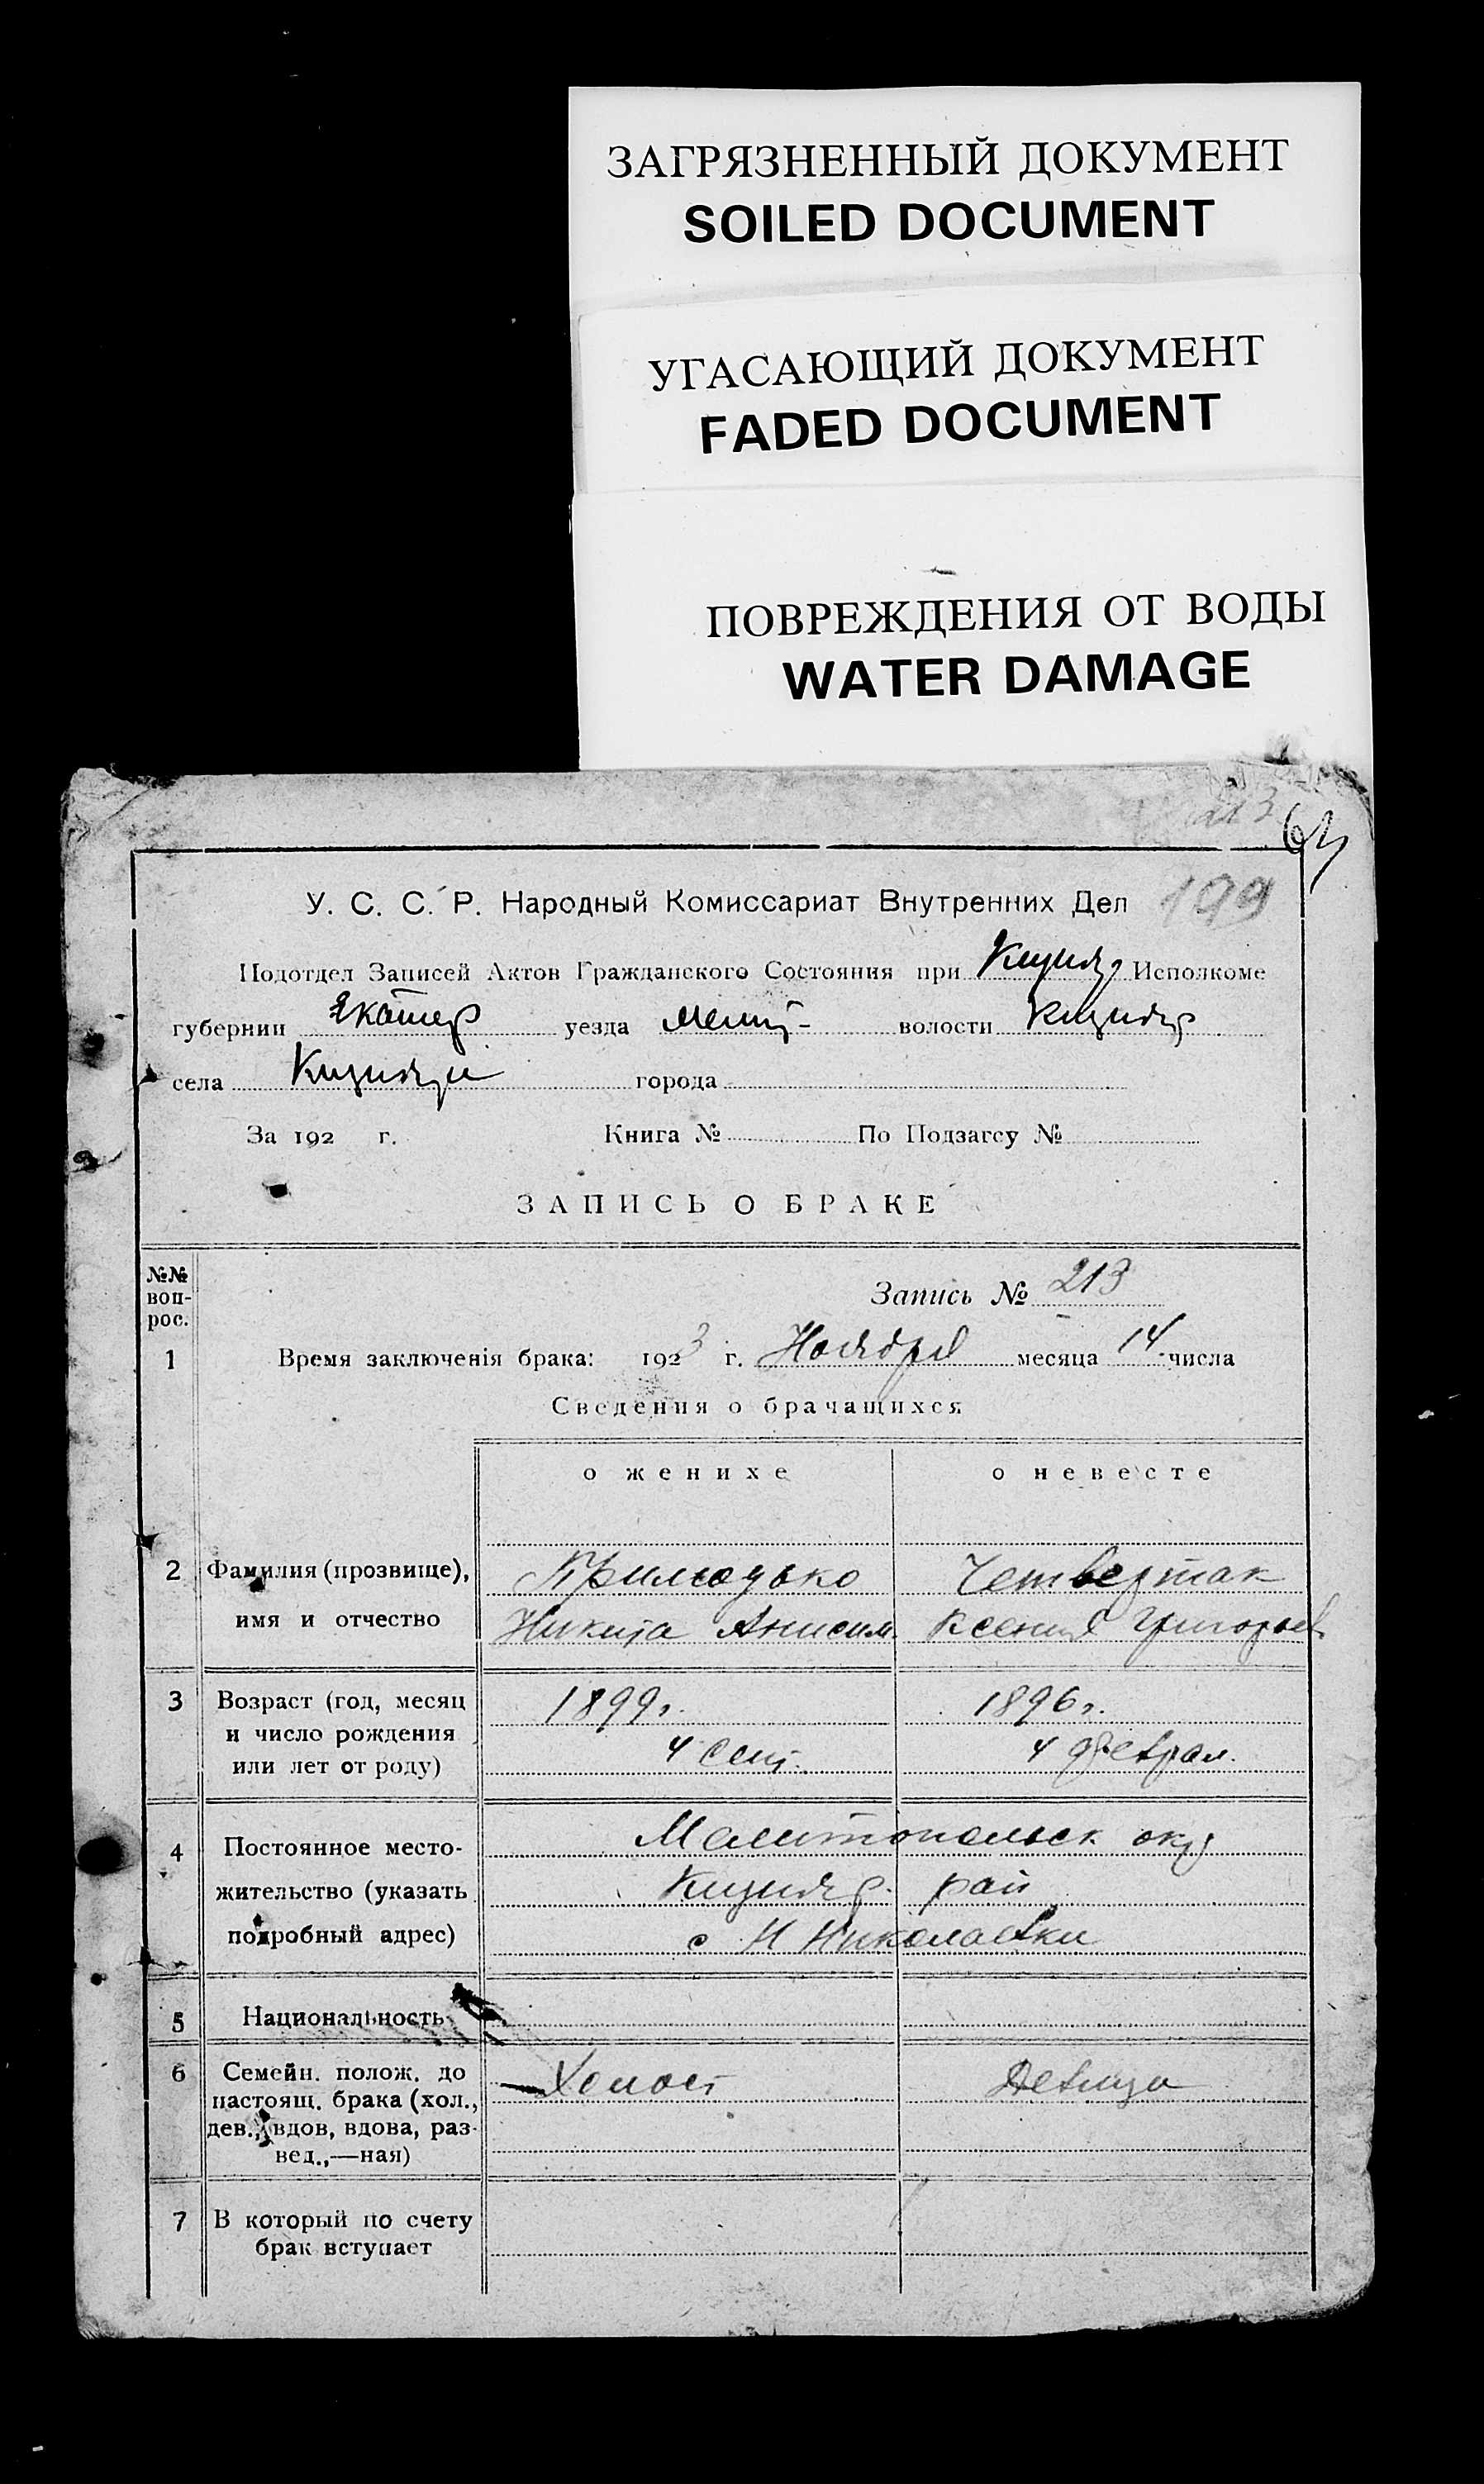 ЗАГРЯЗНЕННЫЙ ДОКУМЕНТ
SOILED DOCUMENT
УГАСАЮЩИЙ ДОКУМЕНТ
FADED DOCUMENT
ПОВРЕЖДЕНИЯ ОТ ВОДЫ
WATER DAMAGE
213
199
У. С. С. Р. Народный Комиссариат Внутренних Дел
Подотдел Записей Актов Гражданского Состояния при Кизияр Исполкоме
губернии Екатер уезда Мелит- волости Кизияр
села Кизияри города
За 192 г. Книга № По Подзагсу №
ЗАПИСЬ О БРАКЕ
№№ воп-рос.
Запись № 213
1 Время заключенія брака: 1923 г. Ноября месяца 14 числа
Сведения о брачащихся
о женихе о невесте
2 Фамилия (прозвище), Приходько Четвертак
имя и отчество Никита Анисим. Ксения Григорьев
3 Возраст (год, месяц 1899г. 1896г.
и число рождения 4 сент. 4 феврал.
или лет от роду)
4 Постоянное место- Мелитопольск окр
жительство (указать Кизияр. рай
подробный адрес) с Н Николаевки
5 Национальность
6 Семейн. полож. до Холост Девица
настоящ. брака (хол.,
дев., вдов, вдова, раз-
вед.,—ная)
7 В который по счету
брак вступает